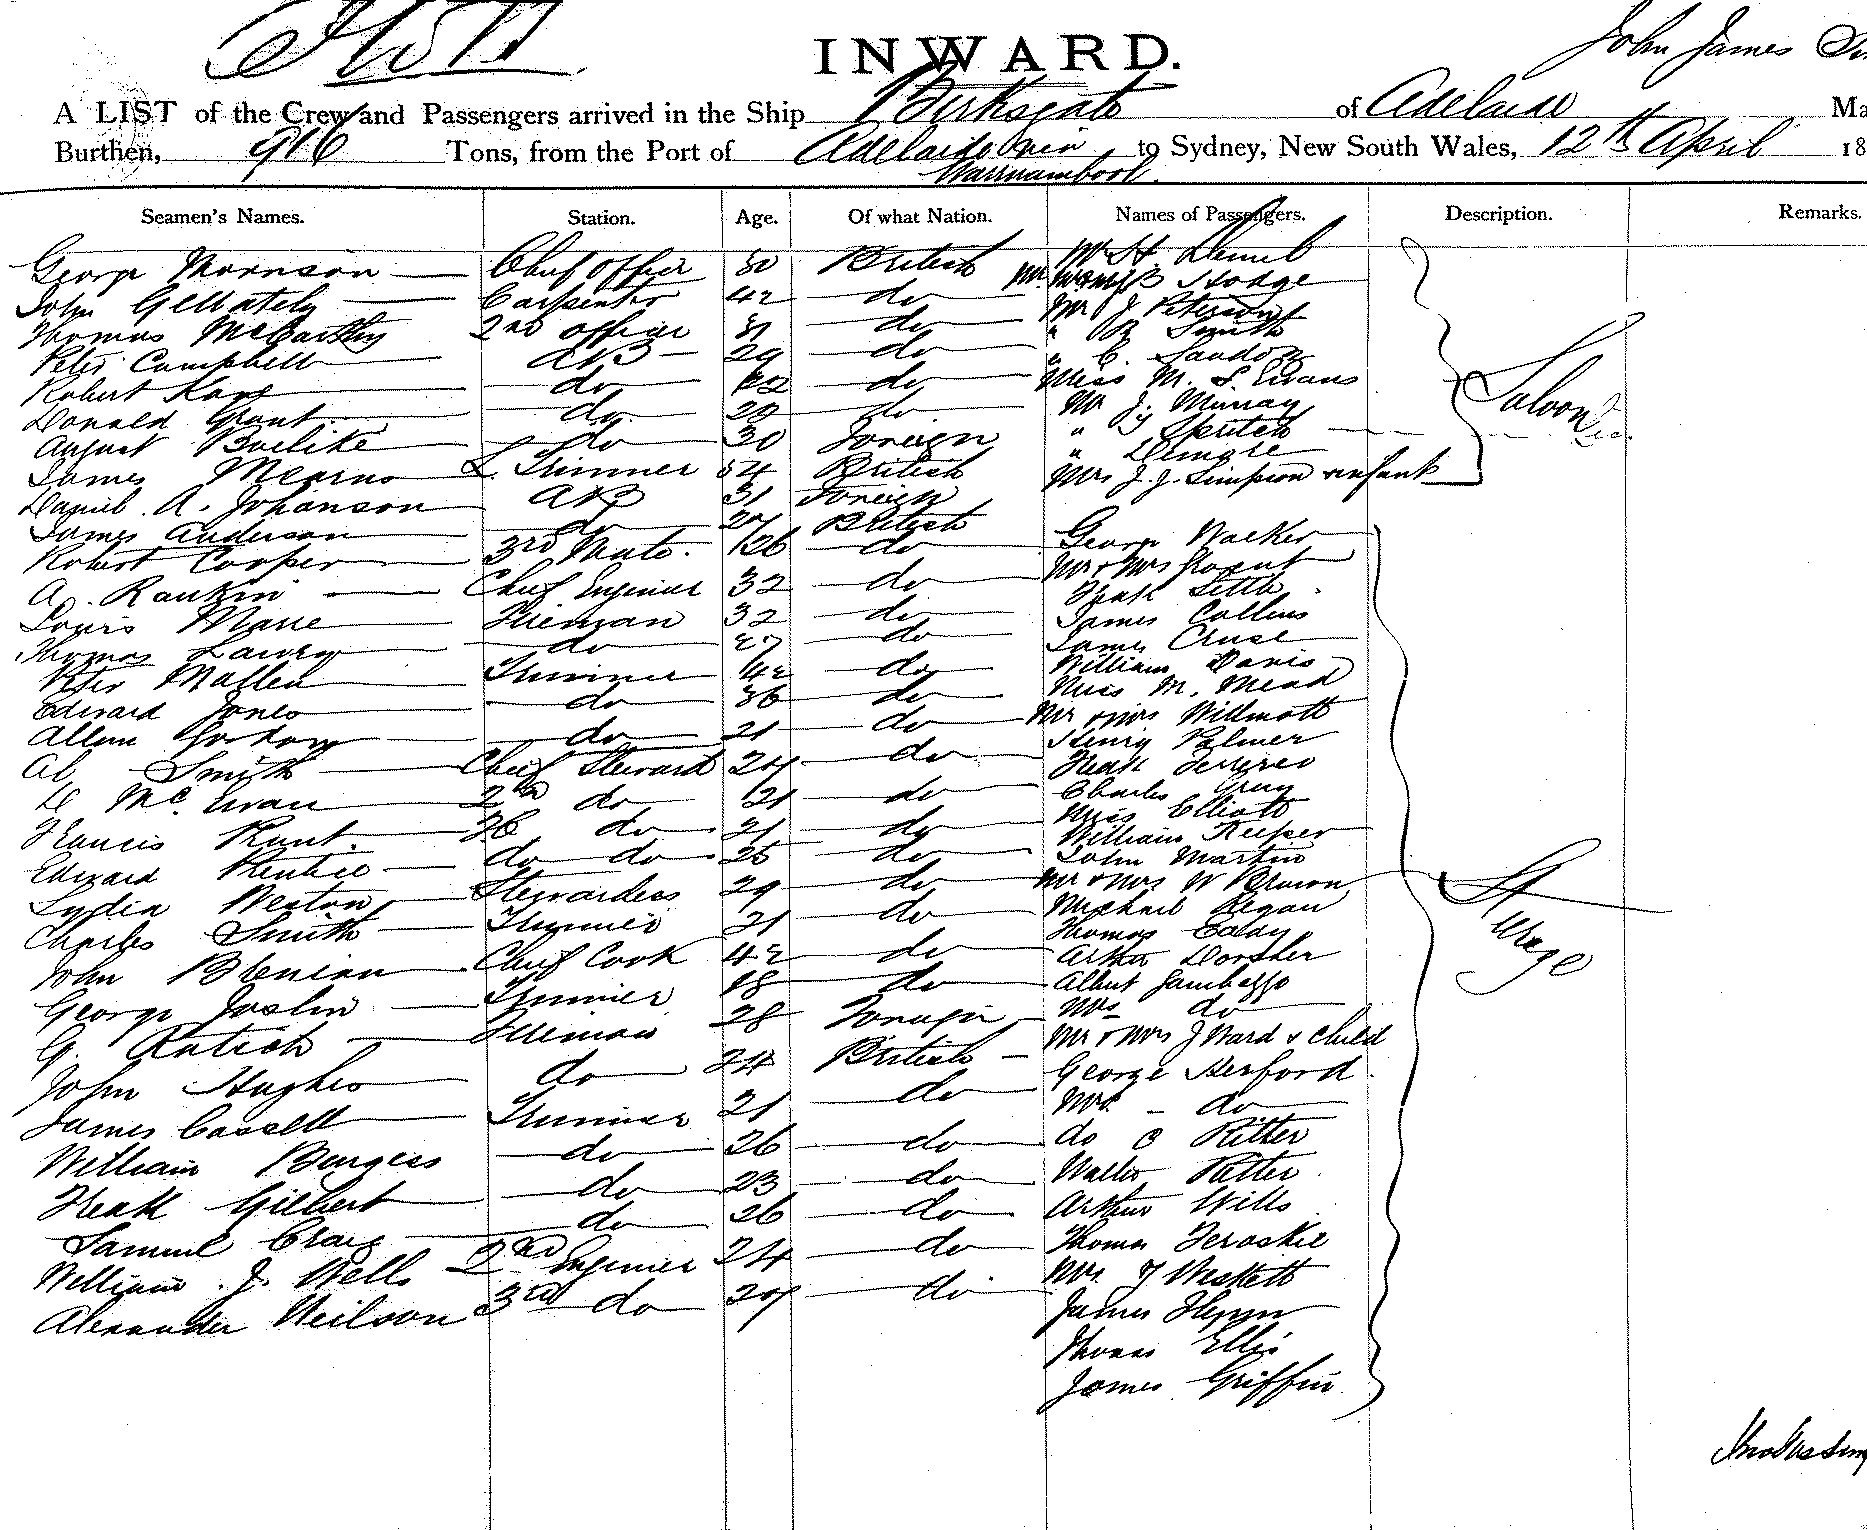 INWARD.
John James
A LIST of the Crew and Passengers arrived in the Ship Birksgate of Adelaide Ma
Burthen, 916 Tons, from the Port of Adelaide via Warrnambool to Sydney, New South Wales, 12th April 18
Seamen's Names. Station. Age. Of what Nation. Names of Passengers. Description. Remarks.
George Morrison Chief Officer 30 British Mr H.
John Gellately Carpenter 42 do Hodge
Thomas McCarthy 2nd officer 31 do Mr J Peterson
Peter Campbell AB 29 do " R Smith
Robert Kay do do " C. Sandow
Donald Grant do 28 do Miss M. S. Evans
August do 30 Foreign Mr J. Murray
James Mearns L. Trimmer 54 British "
Daniel A. Johanson AB 31 Foreign "
James Anderson do 27 British Mrs J. J. Simpson infant
Saloon
Robert Cooper 3rd Mate. 26 do George Walker
A. Rankin Chief Engineer 32 do Mr & Mrs Grant
Louis Marie Fireman 32 do Frank Little
Thomas Lawry do 27 do James Collins
Peter Mallen Trimmer 42 do James Cruse
Edward Jones do 36 do William Davis
Allan Gordon do 21 do Miss M. Mead
Al Smith Chief Steward 24 do Mr & Mrs Willmott
D McEwan 2nd do 21 do Henry Palmer
Francis do 21 do Frank
Edward Prentice do do 25 do Charles Gray
Lydia Weston Stewardess 29 do Miss Elliott
Charles Smith Trimmer 21 do William Keeper
John Chief Cook 42 do John Martin
George Joslin Trimmer 18 do Mr & Mrs W Brown
G. Fireman 28 Foreign Michael Regan
John Hughes do 24 British Thomas
James Cassell Trimmer 21 do Arthur
William Burgess do 26 do Albert
Frank Gilbert do 23 do Mrs do
Samuel Craig do 26 do Mr & Mrs J Ward & child
William J. Wells 2nd Engineer 24 do George Herford
Alexander Neilson 3rd do 27 do Mrs - do
do C Ritter
Walter Ritter
Arthur Wills
Thomas
Mrs J Weskett
James Flynn
Thomas Ellis
James Griffin
Steerage